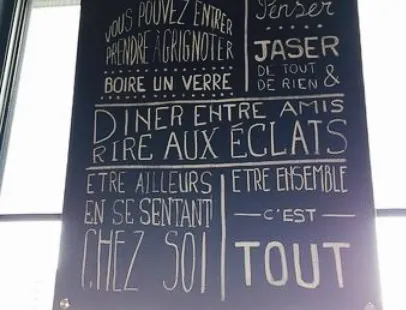 VOUS POUVEZ ENTRER
PRENDRE À GRIGNOTER
BOIRE UN VERRE
Penser
JASER
DE TOUT
DE RIEN &
DINER ENTRE AMIS
RIRE AUX ÉCLATS
ETRE AILLEURS
EN SE SENTANT
CHEZ SOI
ETRE ENSEMBLE
C'EST
TOUT